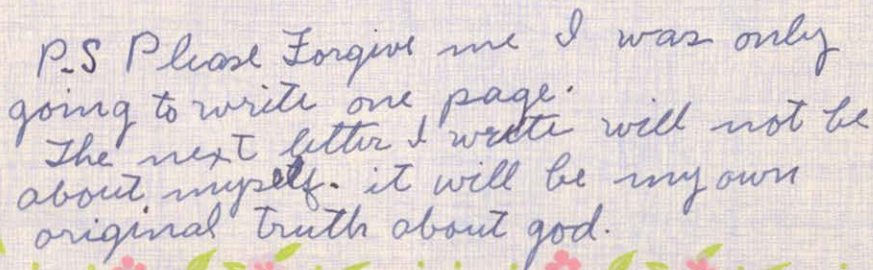 P.S Please Forgive me I was only
going to write one page.
The next letter I write will not be
about myself. it will be my own
original truth about god.